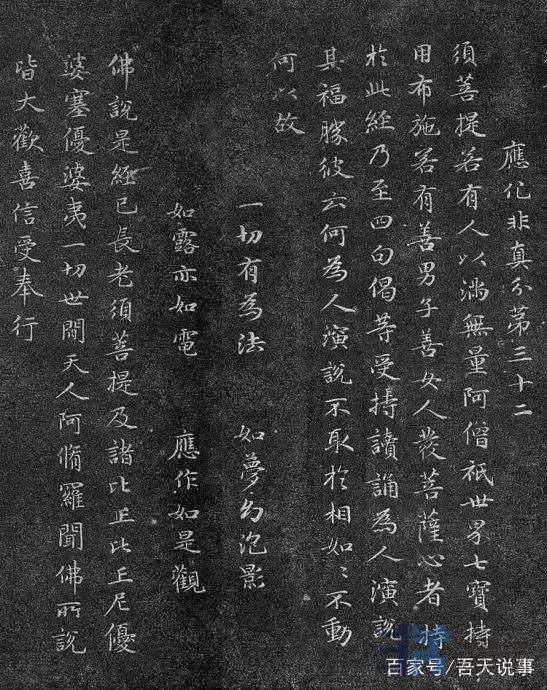 應化非真分第三十二
須菩提若有人以滿無量阿僧祇世界七寶持
用布施若有善男子善女人發菩薩心者持
於此經乃至四句偈等受持讀誦為人演說
其福勝彼云何為人演說不取於相如〻不動
何以故
一切有為法 如夢幻泡影
如露亦如電 應作如是觀
佛說是經已長老須菩提及諸比丘比丘尼優
婆塞優婆夷一切世間天人阿脩羅聞佛所說
皆大歡喜信受奉行
百家号/吾天说事